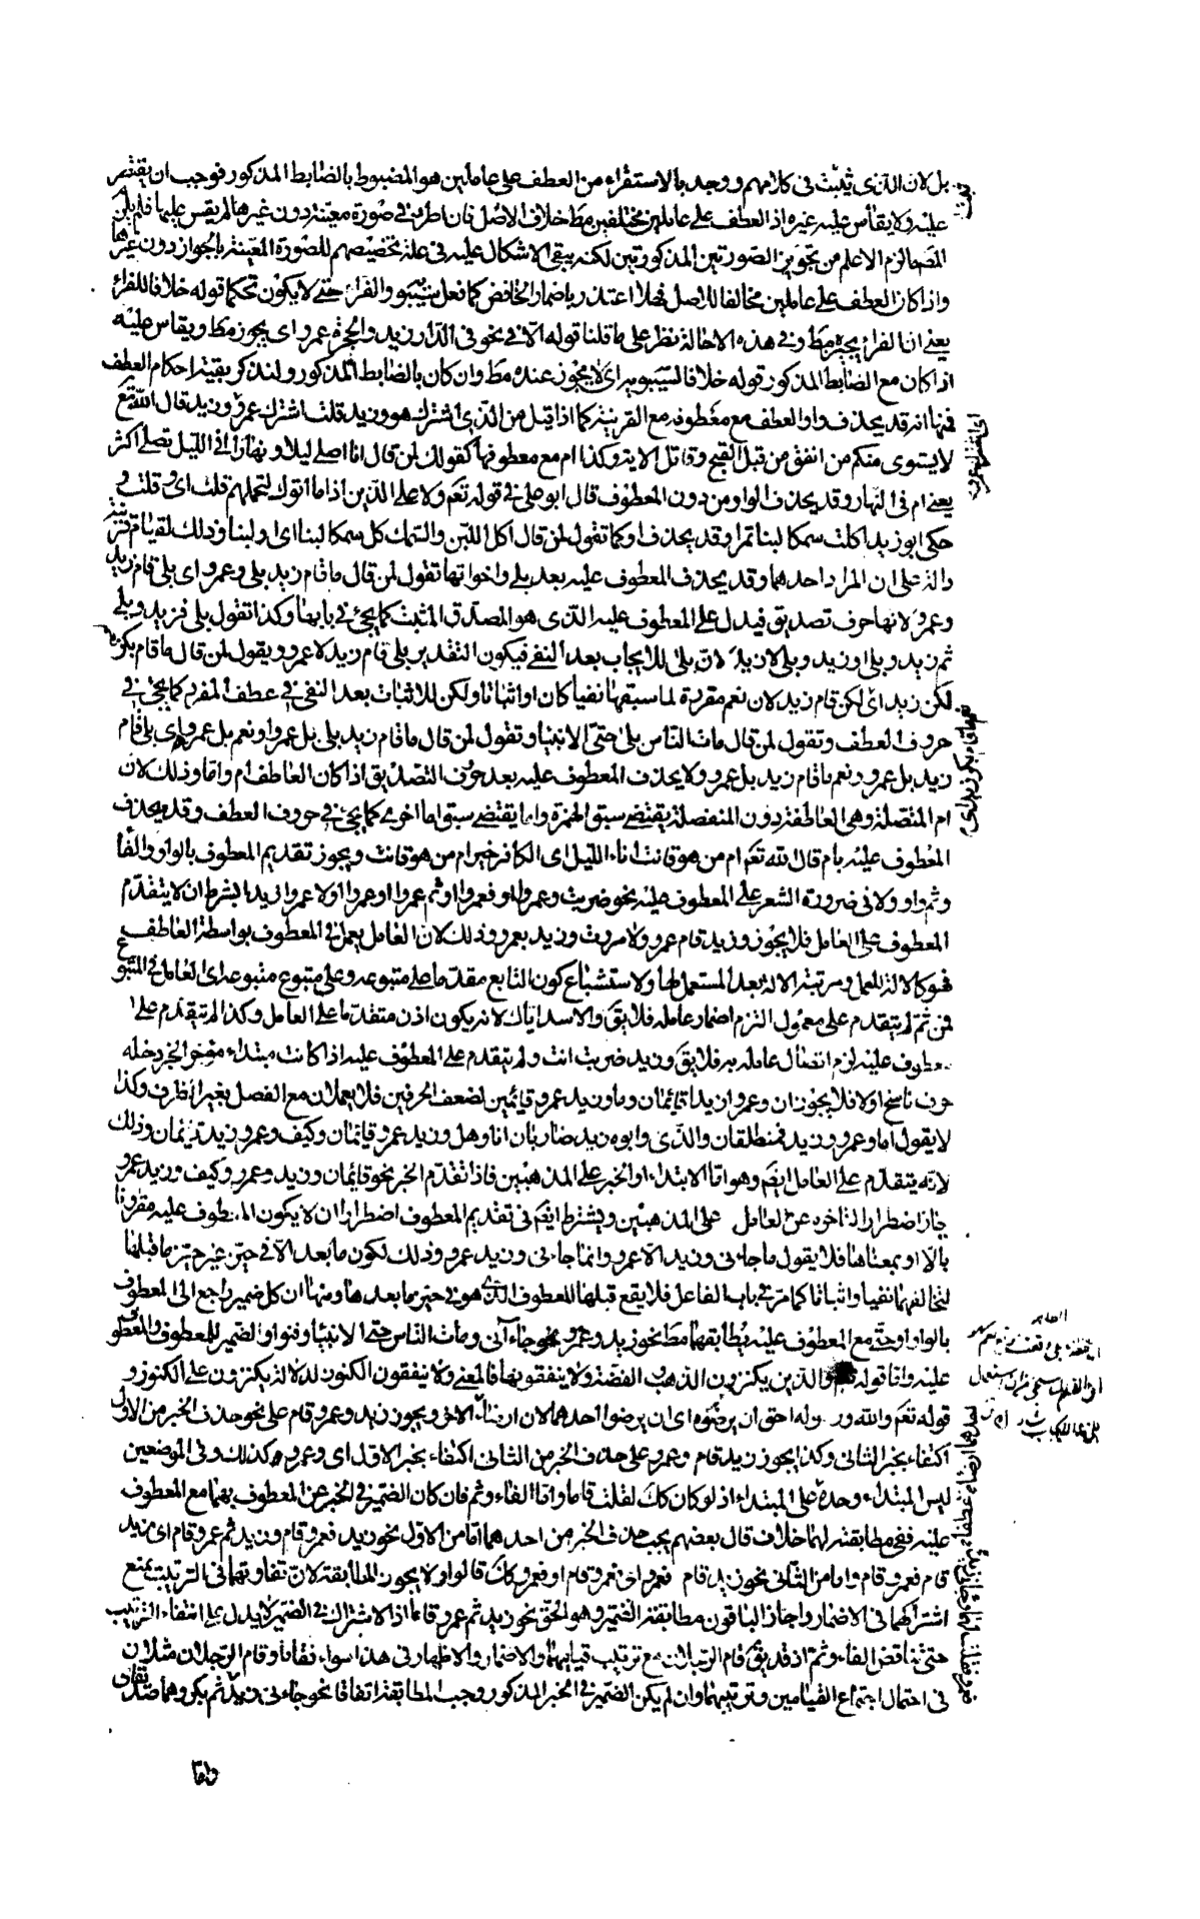 بل لان الذى ثبت فى كلامهم ووجد بالاستقراء من العطف على عاملين هو المضبوط بالضابط المذكور فوجب ان يقتصر
عليه ولا يقاس عليه غيره اذ العطف على عاملين مختلفين مط خلاف الاصل فان اطرد فى صورة معينة دون غيرها لم يقس عليها فلم يكن
المص الزم الاعلم من تجويز الصورتين المذكورتين لكنه يبقى الاشكال عليه فى علة تخصيصهم للصورة المعينة بالجواز دون غيرها
واذا كان العطف على عاملين مخالفا للاصل فهلا اعتذر باضمار الخافض كما فعل سيبويه والفراء حتى لا يكون تحكما قوله خلافا للفراء
يعنى ان الفراء يجيزه مط وفى هذه الاحالة نظر على ما قلنا قوله الا فى نحو فى الدار زيد والحجرة عمرو اى يجوز مط ويقاس عليه
اذا كان مع الضابط المذكور قوله خلافا لسيبويه اى لا يجوز عنده مط وان كان بالضابط المذكور ولنذكر بقية احكام العطف
فمنها انه قد يحذف واو العطف مع معطوفه مع القرينة كما اذا قيل من الذى اشترك هو وزيد قلت اشترك عمرو وزيد قال الله تع
لا يستوى منكم من انفق من قبل الفتح وقاتل الاية وكذا ام مع معطوفها كقولك لمن قال انا اصلى ليلا ونهارا افى الليل تصلى اكثر
يعنى ام فى النهار وقد يحذف الواو من دون المعطوف قال ابو على فى قوله تعم ولا على الذين اذا ما اتوك لتحملهم قلت اى وقلت و
حكى ابو زيد اكلت سمكا لبنا تمرا وقد يحذف او كما تقول لمن قال اكل اللبن والسمك كل سمكا لبنا اى او لبنا وذلك لقيام قرينة
دالة على ان المراد احدهما وقد يحذف المعطوف عليه بعد بلى واخواتها تقول لمن قال ما قام زيد بلى وعمرو اى بلى قام زيد
وعمرو لانها حرف تصديق فيدل على المعطوف عليه الذى هو المصدق المثبت كما يجئ فى بابها وكذا تقول بلى فزيد وبلى
ثم زيد وبلى او زيد وبلى لا زيد لان بلى للايجاب بعد النفى فيكون التقدير بلى قام زيد لا عمرو ويقول لمن قال ما قام بكر
لكن زيد اى لكن قام زيد لان نعم مقررة لما سبقها نفيا كان او اثباتا ولكن للاثبات بعد النفى فى عطف المفرد كما يجئ فى
حروف العطف وتقول لمن قال مات الناس بلى حتى الانبياء وتقول لمن قال ما قام زيد بلى بل عمرو او نعم بل عمرو اى بلى قام
زيد بل عمرو ونعم ما قام زيد بل عمرو ولا يحذف المعطوف عليه بعد حرف التصديق اذا كان العاطف ام واما وذلك لان
ام المتصلة وهى العاطفة دون المنفصلة يقتضى سبق الهمزة واما يقتضى سبق اما اخرى كما يجئ فى حروف العطف وقد يحذف
المعطوف عليه بام قال الله تعم ام من هو قانت اناء الليل اى الكافر خير ام من هو قانت ويجوز تقديم المعطوف بالواو والفاء
وثم واو ولا فى ضرورة الشعر على المعطوف عليه نحو ضربت وعمروا او فعمروا او ثم عمروا او عمروا او لا عمروا زيدا بشرط ان لا يتقدم
المعطوف على العامل فلا يجوز وزيد قام عمرو ولا مررت وزيد بعمرو وذلك لان العامل يعمل فى المعطوف بواسطة العاطف
فهو كالالة للعمل ومرتبة الالة بعد المستعمل لها ولاستشباع كون التابع مقدما على متبوعه وعلى متبوع متبوعه اى العامل فى المتبوع
فمن ثم لم يتقدم على معمول التزم اضمار عامله فلا يق والاسد اياك لانه يكون اذن متقدما على العامل وكذا لم يتقدم على
معطوف عليه لزم اتصال عامله به فلا يق وزيد ضربت انت ولم يتقدم على المعطوف عليه اذا كانت مبتداء مؤخر الخبر دخله
حرف ناسخ اولا فلا يجوز ان وعمرو ان زيدا قائمان وما وزيد عمرو قائمين لضعف الحرفين فلا يعملان مع الفصل بغير الظرف وكذا
لا يقول اما وعمرو وزيد فمنطلقان والذى وابوه زيد ضاربان انا وهل وزيد عمرو قائمان وكيف وعمرو زيد قائمان وذلك
لانه يتقدم على العامل ايضم وهو اما الابتداء او الخبر على المذهبين فاذا تقدم الخبر نحو قائمان وزيد وعمرو وكيف وزيد عمرو
جاز اضطرارا لتاخره عن العامل على المذهبين ويشترط ايضم فى تقديم المعطوف اضطرارا ان لا يكون المعطوف عليه مقرونا
بالا او بمعناها فلا يقول ما جاءنى وزيد الا عمرو وانما جاءنى وزيد عمرو وذلك لكون ما بعد الا فى حيز غير حيز ما قبلها
لتخالفهما نفيا واثباتا كما مر فى باب الفاعل فلا يقع قبلها المعطوف الذى هو فى حيز ما بعدها ومنها ان كل ضمير راجع الى المعطوف
بالواو او حتى مع المعطوف عليه يطابقهما مط نحو زيد وعمرو نحو جاءانى ومات الناس حتى الانبياء وفنوا والضمير للمعطوف والمعطوف
عليه واما قوله والذين يكنزون الذهب الفضة ولا ينفقونها فالمعنى ولا ينفقون الكنوز لدلالة يكنزون على الكنوز و
قوله تعم والله ورسوله احق ان يرضوه اى ان يرضوا احدهما لان ارضاء الاخر ويجوز زيد وعمرو قام على نحو حذف الخبر من الاول
اكتفاء بخبر الثانى وكذا يجوز زيد قام وعمرو على حذف الخبر من الثانى اكتفاء بخبر الاول اى وعمرو كذلك وفى الموضعين
ليس المبتداء وحده على المبتداء اذ لو كان كك لقلت قاما واما الفاء وثم فان كان الضمير فى الخبر عن المعطوف بهما مع المعطوف
عليه ففى مطابقته لهما خلاف قال بعضهم يجب حذف الخبر من احدهما اما من الاول نحو زيد فعمرو قام وزيد ثم عمرو قام اى زيد
قام فعمرو قام واما من الثانى نحو زيد قام فعمرو اى فعمرو قام او فعمرو كك قالوا ولا يجوز المطابقة لان تفاوتهما فى الترتيب يمنع
اشتراكهما فى الاضمار واجاز الباقون مطابقة الضمير وهو الحق نحو زيد ثم عمرو قاما اذ الاشتراك فى الضمير لا يدل على انتفاء الترتيب
حتى تناقض الفاء وثم اذ قد يق قام الرجلان مع ترتيب قيامهما والاضمار والاظهار فى هذا سواء فقاما وقام الرجلان مثلان
فى احتمال اجتماع القيامين وترتيبهما وان لم يكن الضمير فى الخبر المذكور وجب المطابقة اتفاقا نحو جاءنى زيد ثم بكر وهما صديقان
واما